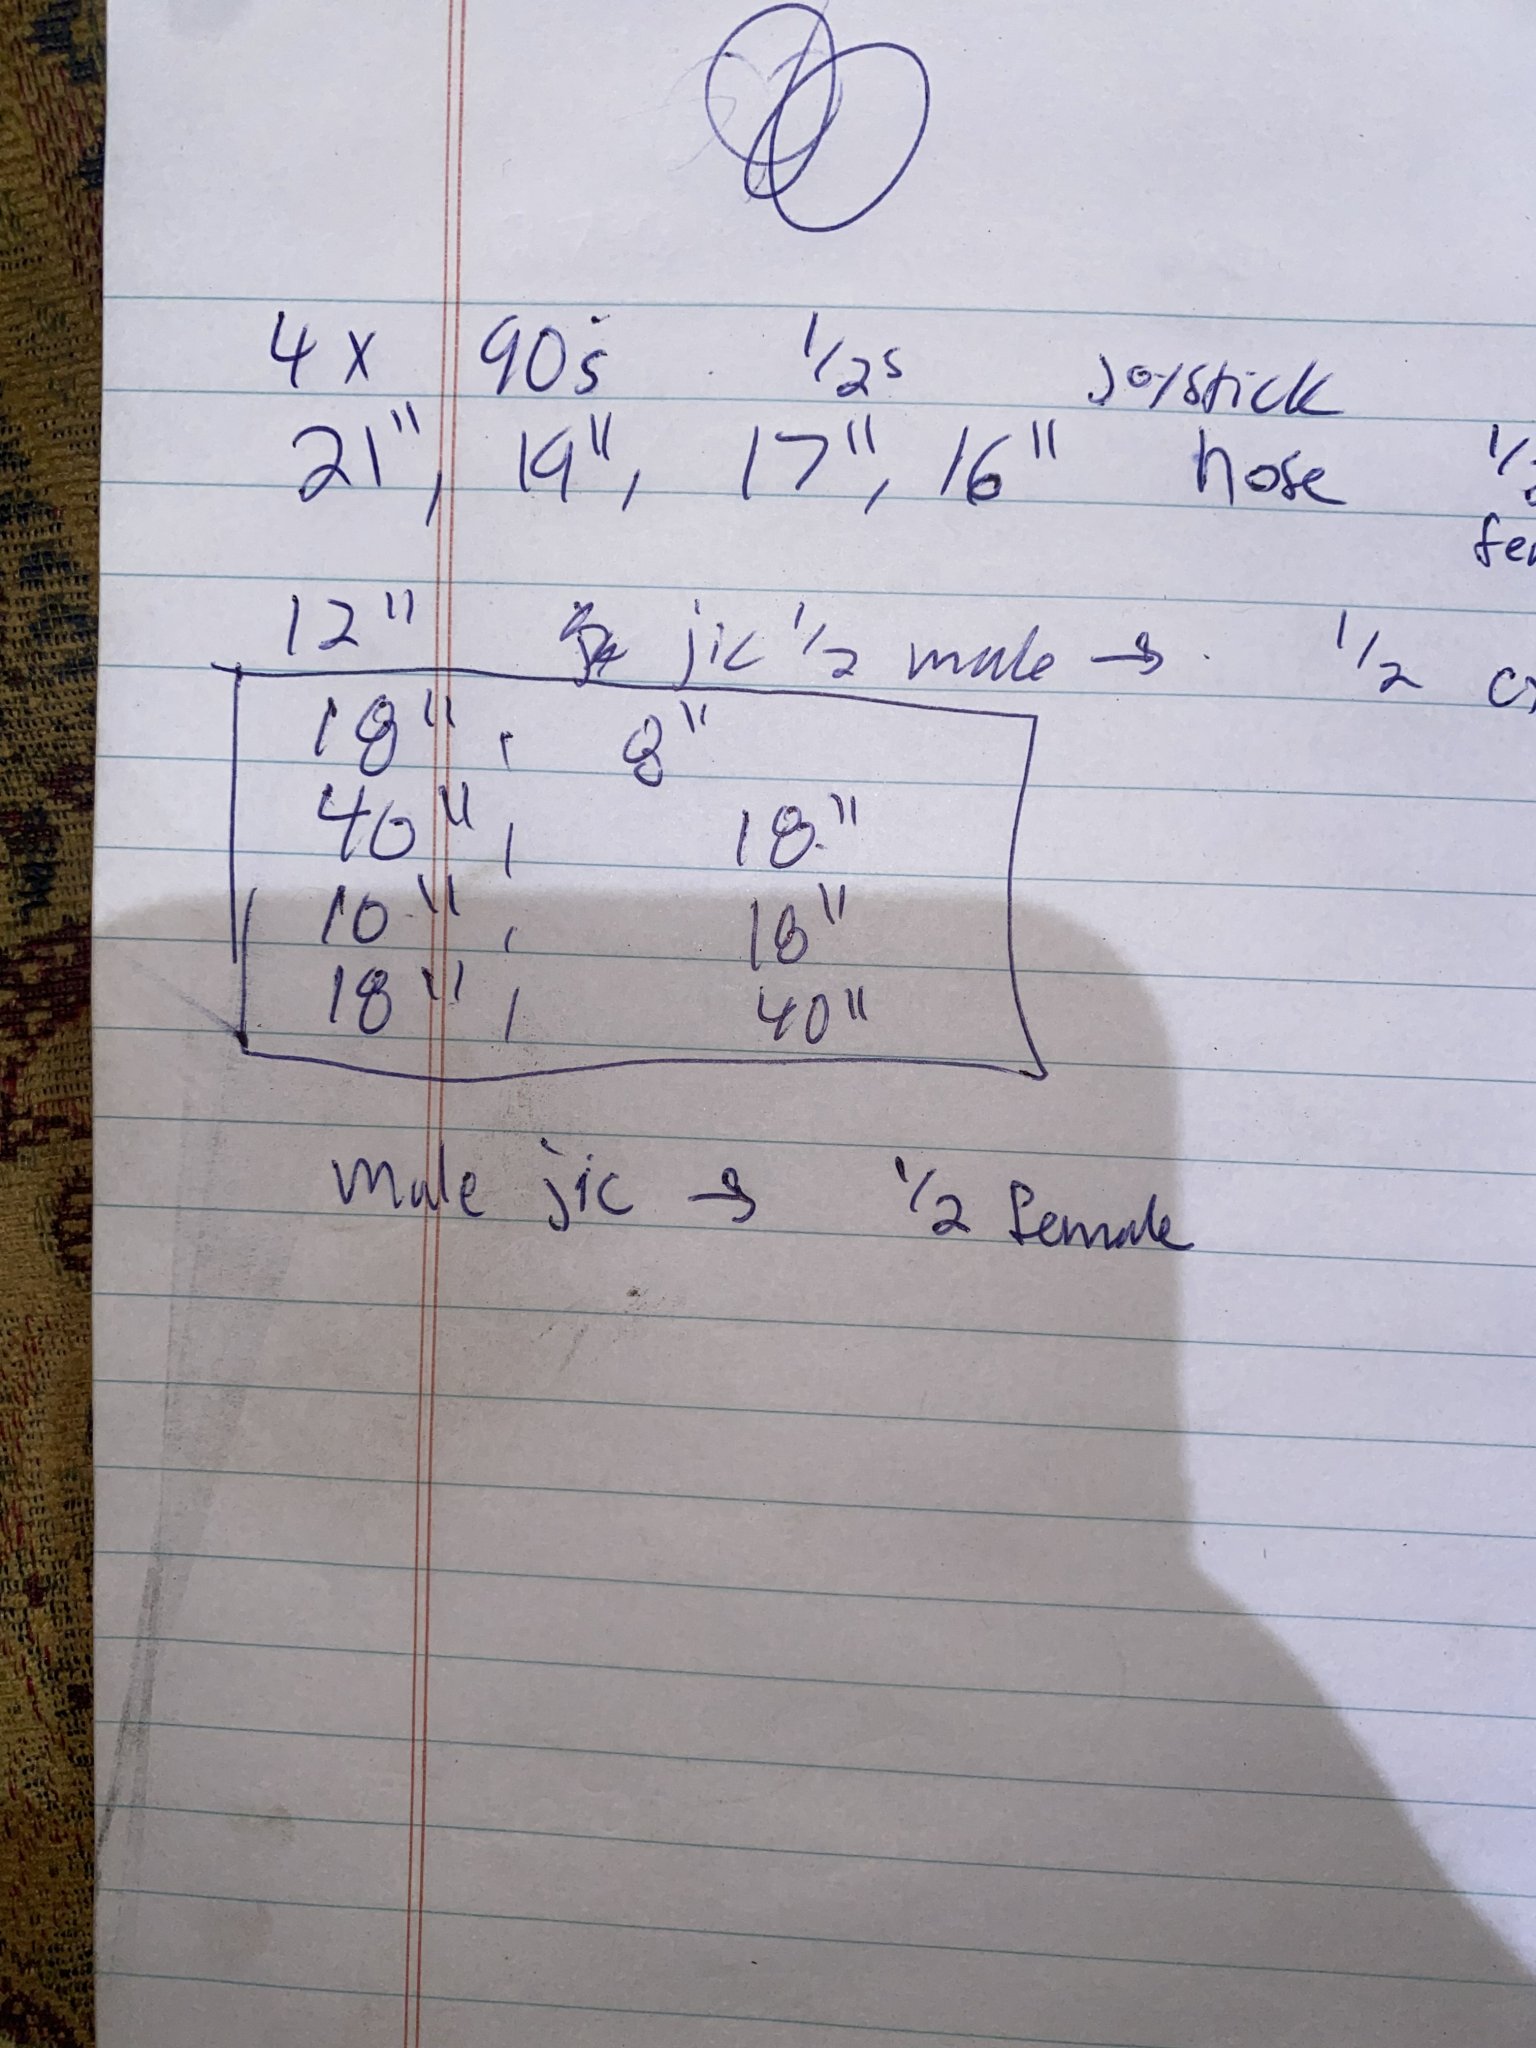 4x 90's 1/2s Joystick
21", 19", 17", 16" hose
12" jic 1/2 male → 1/2
18", 8"
40", 18"
10", 18"
18", 40"
male jic → 1/2 female